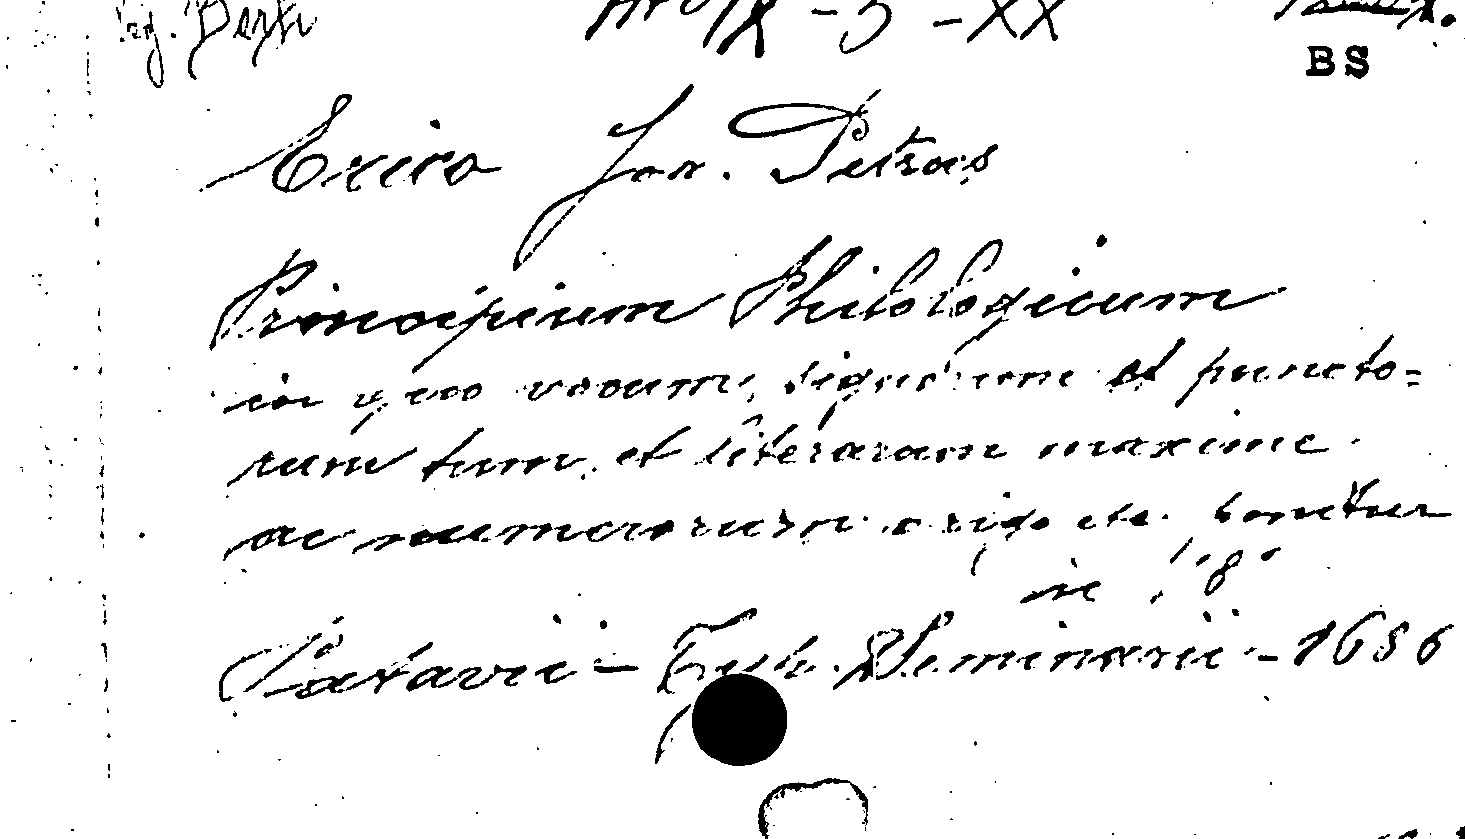 IX-5-XX
BS
Erico Joa. Petrus
Principium Philologicum
in quo vocum, signorum et puncto=
rum tum, et literarum maxime
ac numerorum origo etc.
in 8°
Patavii - Typ. Seminarii - 1686